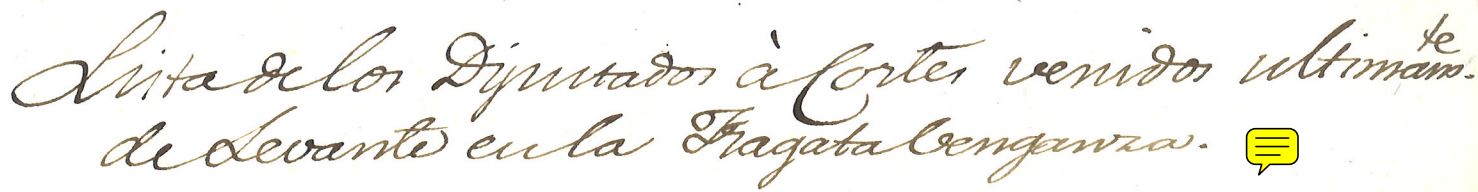 Lista de los Diputados à Cortes venidos ultimam.te
de Levante en la Fragata Venganza.